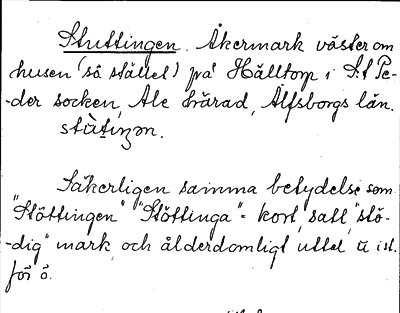 Stuttingen. Åkermark väster om
husen (så stället) på Hålltorp i S:t Pe-
-der socken, Ale härad, Älfsborgs län.
stùtiŋən.
Säkerligen samma betydelse som
"Stöttingen" "Stöttinga" = kort, satt, "stö-
-dig" mark, och ålderdomligt uttal u ist.
för ö.